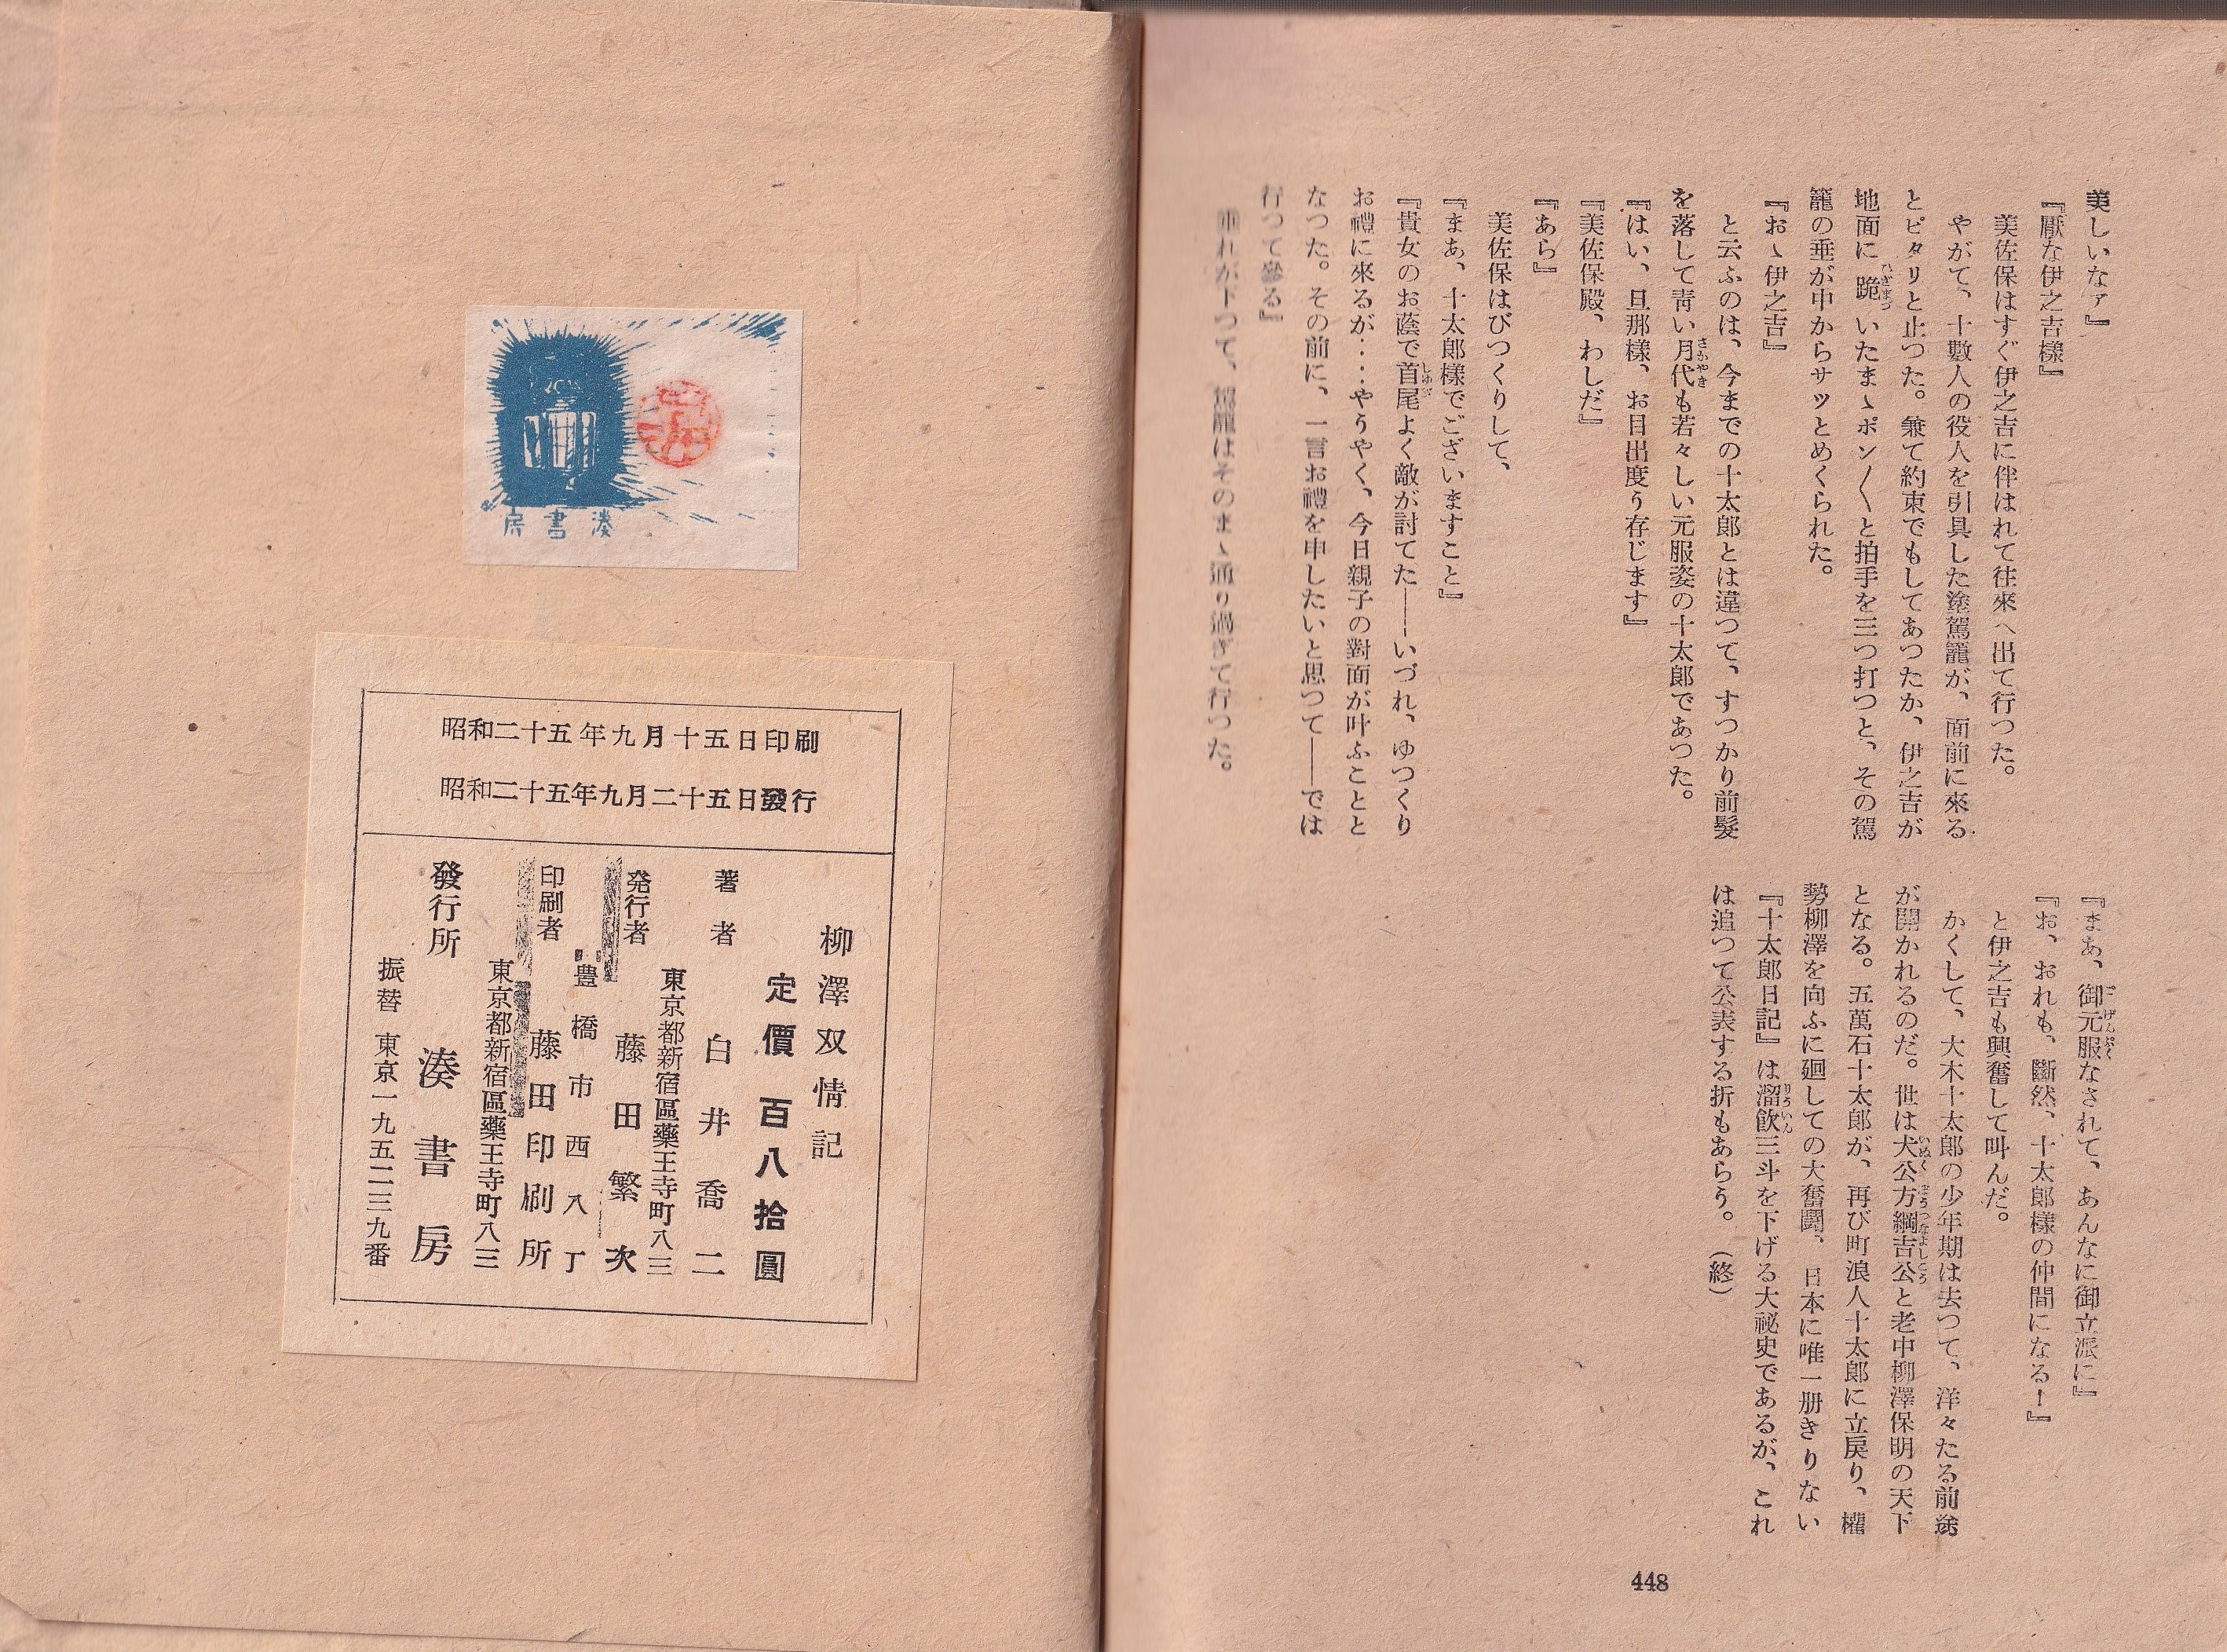 美しいなァ』
『厭な伊之吉樣』
美佐保はすぐ伊之吉に伴はれて往來へ出て行つた。
やがて、十數人の役人を引具した塗駕籠が、面前に來る
とピタリと止つた。兼て約束でもしてあつたか、伊之吉が
地面に跪いたまゝポン〳〵と拍手を三つ打つと、その駕
籠の垂が中からサツとめくられた。
『おゝ伊之吉』
と云ふのは、今までの十太郎とは違つて、すつかり前髮
を落して靑い月代も若々しい元服姿の十太郎であつた。
『はい、旦那樣、お目出度う存じます』
『美佐保殿、わしだ』
『あら』
美佐保はびつくりして、
『まあ、十太郎樣でございますこと』
『貴女のお蔭で首尾よく敵が討てた――いづれ、ゆつくり
お禮に來るが‥‥やうやく、今日親子の對面が叶ふことと
なつた。その前に、一言お禮を申したいと思つて――では
行つて參る』
垂れが下つて、塗籠はそのまゝ通り過ぎて行つた。
『まあ、御元服なされて、あんなに御立派に』
『お、おれも、斷然、十太郎樣の仲間になる！』
と伊之吉も興奮して叫んだ。
かくして、大木十太郎の少年期は去つて、洋々たる前途
が開かれるのだ。世は犬公方綱吉公と老中柳澤保明の天下
となる。五萬石十太郎が、再び町浪人十太郎に立戻り、權
勢柳澤を向ふに廻しての大奮鬪、日本に唯一册きりない
『十太郎日記』は溜飮三斗を下げる大祕史であるが、これ
は追つて公表する折もあらう。（終）
448
湊書房
昭和二十五年九月十五日印刷
昭和二十五年九月二十五日發行
柳澤双情記
定價百八拾圓
著者 白井喬二
東京都新宿區藥王寺町八三
発行者 藤田繁次
豊橋市西八丁
印刷者 藤田印刷所
東京都新宿區藥王寺町八三
發行所 湊書房
振替 東京一九五二三九番